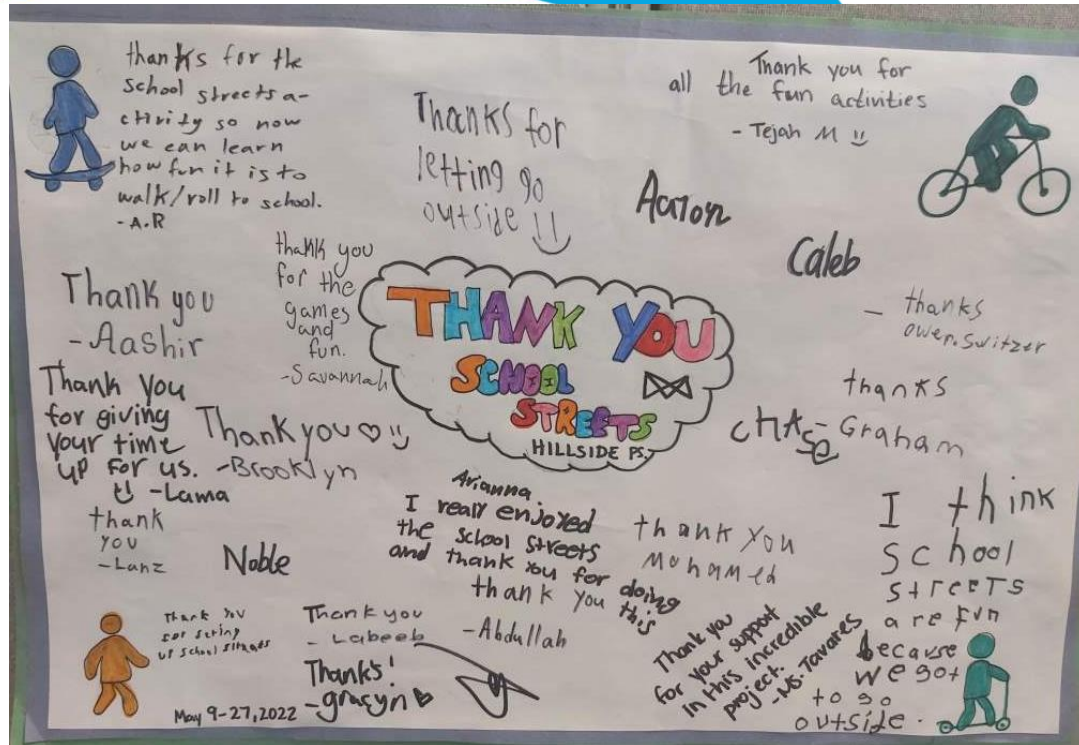 thanks for the
school streets a-
ctivity so now
we can learn
how fun it is to
walk/roll to school.
- A.R
Thanks for
letting go
outside
Thank you for
all the fun activities
- Tejah M
Aaron
Caleb
Thank you
- Aashir
thank you
for the
games
and
fun.
- Savannah
THANK YOU
SCHOOL
STREETS
HILLSIDE PS.
- thanks
owen. Switzer
thanks
- Graham
CHASe
Thank You
for giving
your time
up for us.
- Lama
Thank you
- Brooklyn
thank
you
- Lanz
Noble
Arianna
I really enjoyed
the school streets
and thank you for doing
this
thank you
Mohamed
thank you
- Abdullah
I think
School
streets
are fun
because
we got
to go
outside.
Thank you
up school
Thank you
- Labeeb
Thanks!
- gracyn
Thank you
for your support
in this incredible
project.
- Ms. Tavares
May 9-27, 2022